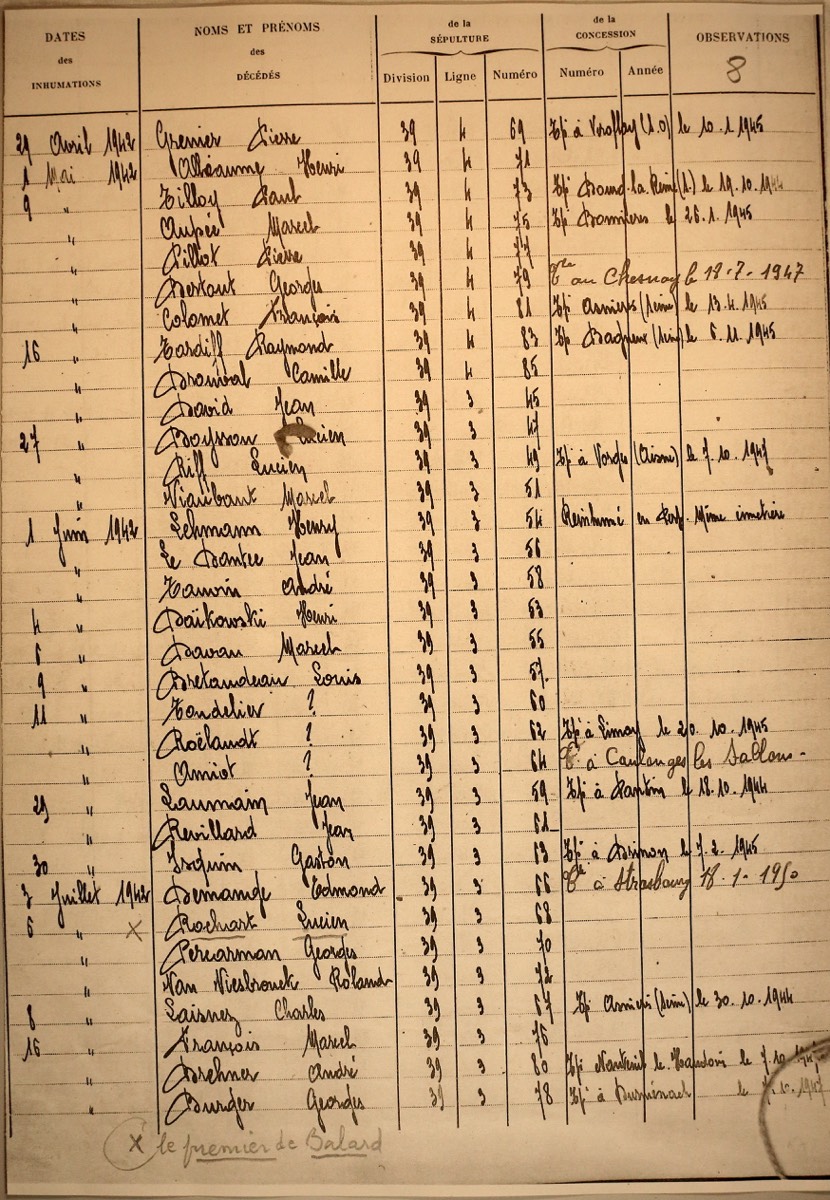 DATES des INHUMATIONS
NOMS ET PRÉNOMS des DÉCÉDÉS
de la SÉPULTURE
Division Ligne Numéro
de la CONCESSION
Numéro Année
OBSERVATIONS
8
29 Avril 1942 Grenier Pierre 39 4 69 le 10.1.1945
1 Mai 1942 Alhéaume Henri 39 4 71
9 " Tilloy Paul 39 4 73 le 19.10.1944
" Aupée Marcel 39 4 75 le 26.1.1945
" Pillot Pierre 39 4 77
" Bertaut Georges 39 4 79 au Chesnay le 18-7-1947
" Colomet François 39 4 81 Asnières (Seine) le 13.4.1945
16 " Tardiff Raymond 39 4 83 Bagneux (Seine) le 6.11.1945
" Camille 39 4 85
" David Jean 39 3 45
27 " Boysson Lucien 39 3 47
" Riff Lucien 39 3 49 Tpé à Vorges (Aisne) le 7.10.1947
" Marcel 39 3 51
1 Juin 1942 Lehmann Henry 39 3 54 Réinhumé en Même cimetière
" Le Dantec Jean 39 3 56
" Hanvin André 39 3 58
4 " Daïkowski Henri 39 3 53
6 " Davan Marcel 39 3 55
9 " Bretaudeau Louis 39 3 57
11 " Tondelier ? 39 3 60
" Roëlandt ? 39 3 62 Tpé à Limay le 20.10.1945
" Amiot ? 39 3 64 à Caulanges les Sablons -
29 " Laumain Jean 39 3 59 Tpé à Pantin le 18.10.1944
" Revillard Jean 39 3 61
30 " Gaston 39 3 63 Tpé à le 7.2.1945
3 Juillet 1942 Demange Edmond 39 3 66 à Strasbourg 18-1-1950
6 " X Rochart Lucien 39 3 68
" Percarman Georges 39 3 70
" Van Niesbrouck Roland 39 3 72
8 " Laisney Charles 39 3 67 Tpé Asnières (Seine) le 30.10.1944
16 " François Marcel 39 3 76
" Brehner André 39 3 80 Tpé Nanteuil le Haudoin le 7.10.194
" Burger Georges 39 3 78 Tpé à le 7.10.1947
X le premier de Balard